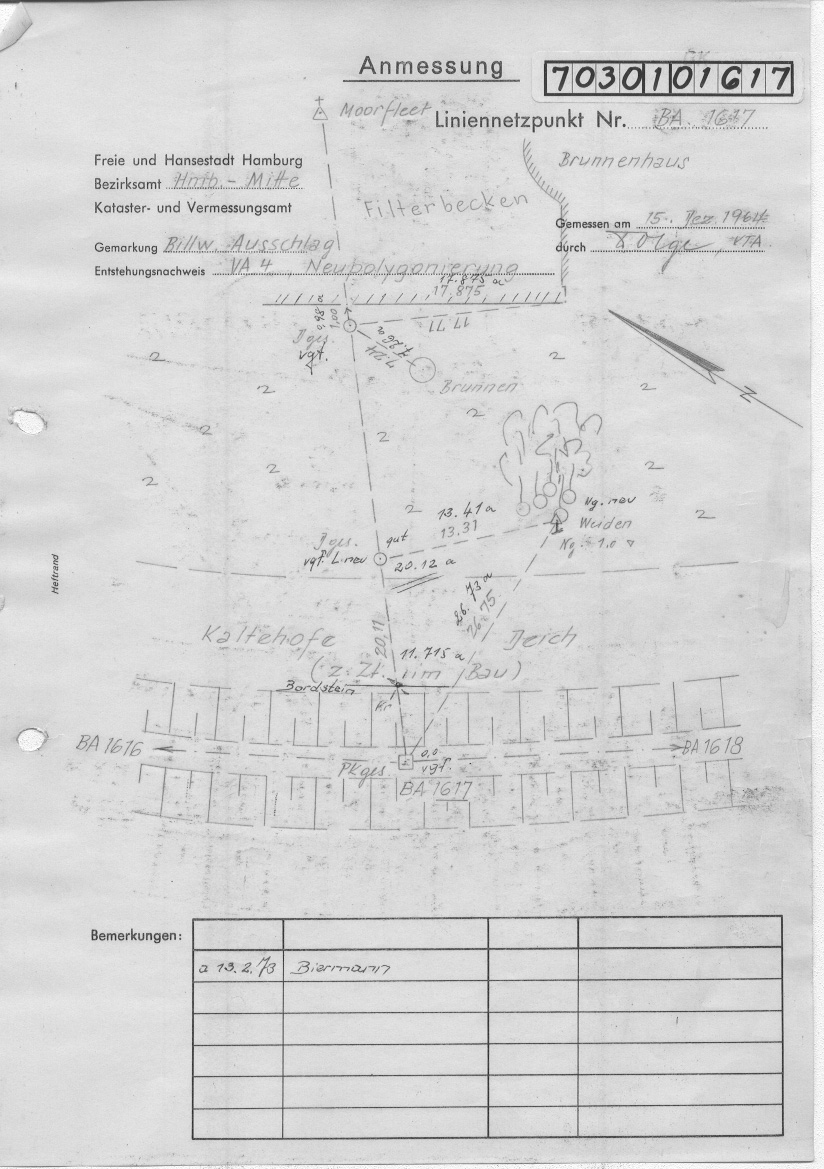 Anmessung
7030101617
Moorfleet
Liniennetzpunkt Nr. BA 1617
Brunnenhaus
Freie und Hansestadt Hamburg
Bezirksamt Hmb.- Mitte
Kataster- und Vermessungsamt
Filterbecken
Gemessen am 15. Dez. 1964
Gemarkung Billw. Ausschlag
durch VTA
Entstehungsnachweis VA 4 Neupolygonierung
17.875 a
17,875
0,98 a
1.00
17.71
Dges.
vgf.
7.26 a
7.24
Brunnen
N
Ng. neu
13.41 a
13.31
Weiden
gut
Dges.
vgf. L. neu
20.12 a
Heftrand
26.73 a
26.75
20,11
Kaltehofe Deich
11.715 a
(z. Zt. im Bau)
Bordstein
Kr
BA 1616
BA 1618
0,0
vgf.
PKges
BA 1617
Bemerkungen:
a 13.2.73 Biermann